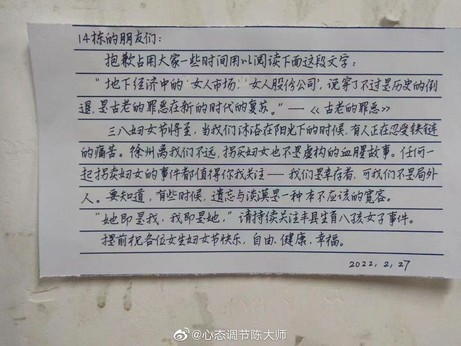 14栋的朋友们：
抱歉占用大家一些时间用以阅读下面这段文字：
“地下经济中的‘女人市场’，‘女人股份公司’，说穿了不过是历史的倒
退，是古老的罪恶在新的时代的复苏。”——《古老的罪恶》
三八妇女节将至，当我们沐浴在阳光下的时候，有人正在忍受铁链
的痛苦。徐州离我们不远，拐买妇女也不是虚构的血腥故事。任何一
起拐卖妇女的事件都值得你我关注——我们是幸存者，可我们不是局外
人。要知道，有些时候，遗忘与淡漠是一种本不应该的宽容。
“她即是我，我即是她，”请持续关注丰县生育八孩女子事件。
提前祝各位女生妇女节快乐，自由、健康、幸福。
2022.2.27
@心态调节陈大师